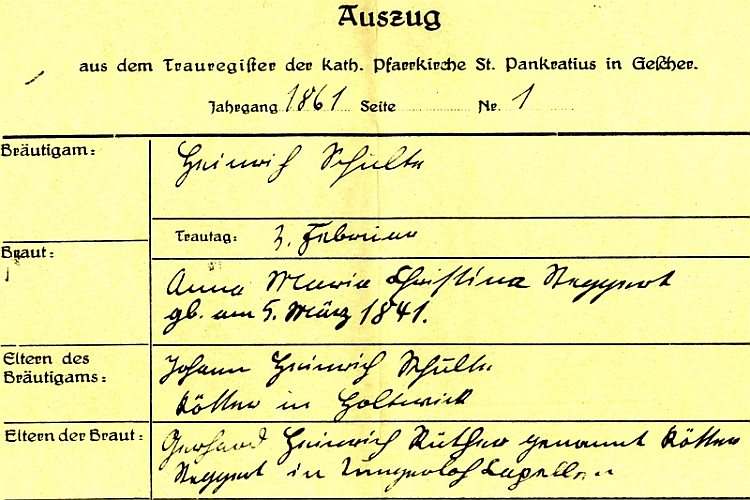 Auszug
aus dem Trauregister der kath. Pfarrkirche St. Pankratius in Gescher.
Jahrgang 1861 Seite Nr. 1
Bräutigam: Heinrich Schulte
Trautag: 3. Februar
Braut: Anna Maria Christina Reppert
gb. am 5. März 1841.
Eltern des Bräutigams: Johann Heinrich Schulte
Kötter in Holtwick
Eltern der Braut: Gerhard Heinrich genannt Kötter
in